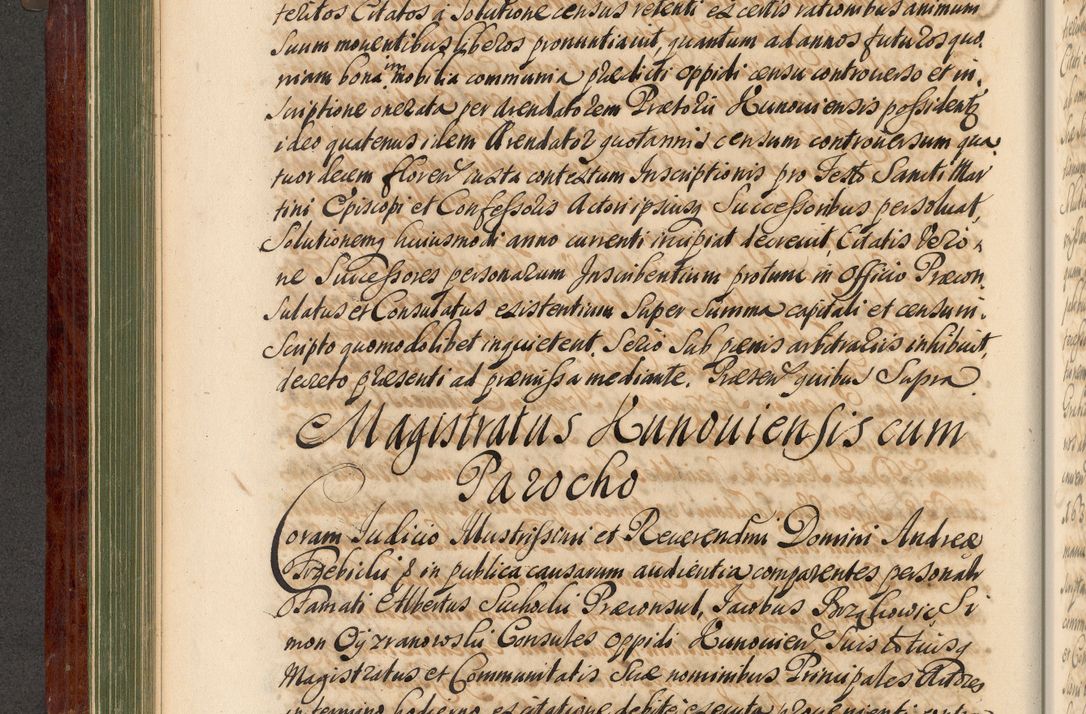 teritos Citatos à Solutione census retenti ex certis rationibus animum
Suum moventibus liberos pronuntiavit, quantum ad annos futuros quo.
niam bona immobilia communia prædicti oppidi censu controverso et in.
scriptione onerata per Arendatorem Prætorii Kunoviensis possidentz
ideo quatenus idem Arendator quotannis censum controversum qua
tuordecem floren̄ iuxta contextum Inscriptionis pro Festo Sancti Mar
tini Episcopi et Confessoris Actori ipsiusq Successoribus persoluat,
Solutionemq huiusmodi anno currenti incipiat decrevit, Citatis Vero.
ne Successores personarum Inscribentium protunc in Officio Præcon
sulatus et Consulatus existentium Super Summa capitali et censu in.
scripto quomodolibet inquietent, Serio Sub pænis arbitrariis inhibuit,
decreto præsenti ad præmissa mediante. Præsen quibus Supra
Magistratus Kunoviensis cum
Parocho
Coram Iudicio Illustrissimi et Reverendmi Domini Andreæ
Trzebicki & in publica causarum audientia comparentes personalr
Famati Albertus Suchocki Præconsul, Jacobus Si
mon Consules oppidi Kunovien̄ Suis totiusq
Magistratus et Communitatis Suæ nominibus Principales Actores
in termino hodierno ex citatione debite executa